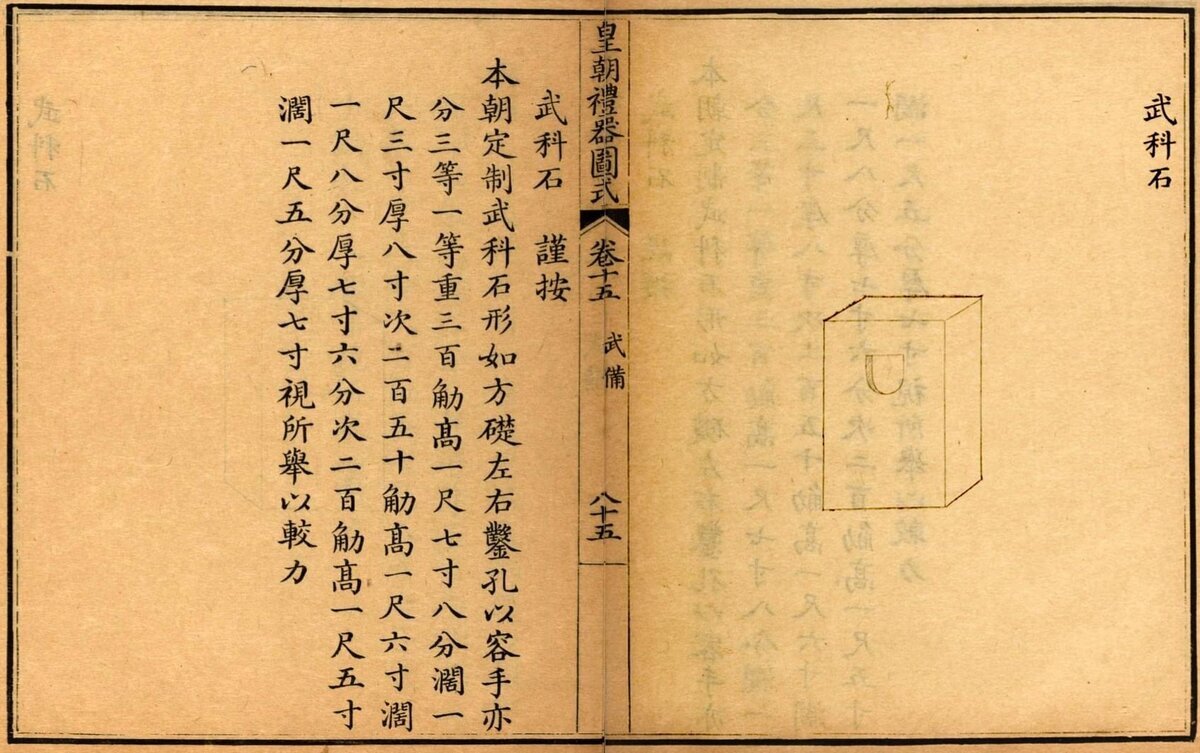 武科石
皇朝禮器圖式 卷十五 武備 八十五
武科石 謹按
本朝定制武科石形如方礎左右鑿孔以容手亦
分三等一等重三百觔髙一尺七寸八分濶一
尺三寸厚八寸次二百五十觔髙一尺六寸濶
一尺八分厚七寸六分次二百觔髙一尺五寸
濶一尺五分厚七寸視所舉以較力